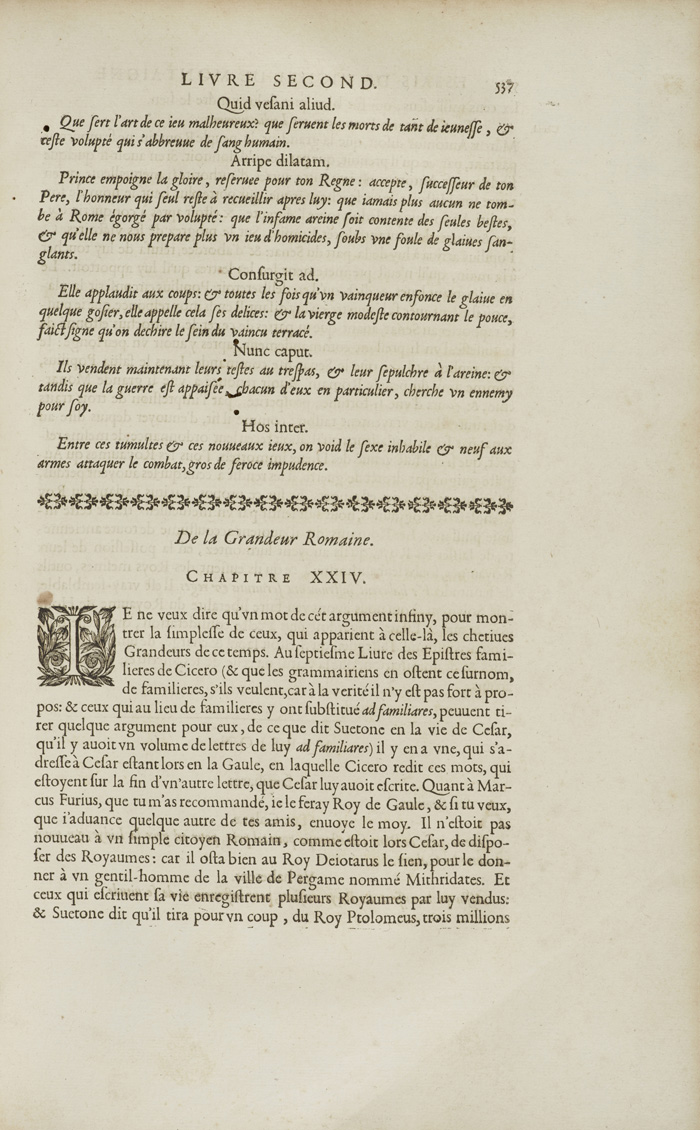 LIVRE SECOND. 537
Quid vesani aliud.
Que sert l'art de ce ieu malheureux? que seruent les morts de tant de ieunesse, &
ceste volupté qui s'abbreuue de sang humain.
Arripe dilatam.
Prince empoigne la gloire, reseruee pour ton Regne: accepte, successeur de ton
Pere, l'honneur qui seul reste à recueillir apres luy: que iamais plus aucun ne tom-
be à Rome égorgé par volupté: que l'infame areine soit contente des seules bestes,
& qu'elle ne nous prepare plus vn ieu d'homicides, soubs vne foule de glaiues san-
glants.
Consurgit ad.
Elle applaudit aux coups: & toutes les fois qu'vn vainqueur enfonce le glaiue en
quelque gosier, elle appelle cela ses delices: & la vierge modeste contournant le pouce,
faict signe qu'on dechire le sein du vaincu terracé.
Nunc caput.
Ils vendent maintenant leurs testes au trespas, & leur sepulchre à l'areine: &
tandis que la guerre est appaisée, chacun d'eux en particulier, cherche vn ennemy
pour soy.
Hos inter.
Entre ces tumultes & ces nouueaux ieux, on void le sexe inhabile & neuf aux
armes attaquer le combat, gros de feroce impudence.
De la Grandeur Romaine.
CHAPITRE XXIV.
IE ne veux dire qu'vn mot de cét argument infiny, pour mon-
trer la simplesse de ceux, qui apparient à celle-là, les chetiues
Grandeurs de ce temps. Au septiesme Liure des Epistres fami-
lieres de Cicero (& que les grammairiens en ostent ce surnom,
de familieres, s'ils veulent, car à la verité il n'y est pas fort à pro-
pos: & ceux qui au lieu de familieres y ont substitué ad familiares, peuuent ti-
rer quelque argument pour eux, de ce que dit Suetone en la vie de Cesar,
qu'il y auoit vn volume de lettres de luy ad familiares) il y en a vne, qui s'a-
dresse à Cesar estant lors en la Gaule, en laquelle Cicero redit ces mots, qui
estoyent sur la fin d'vn'autre lettre, que Cesar luy auoit escrite. Quant à Mar-
cus Furius, que tu m'as recommandé, ie le feray Roy de Gaule, & si tu veux,
que i'aduance quelque autre de tes amis, enuoye le moy. Il n'estoit pas
nouueau à vn simple citoyen Romain, comme estoit lors Cesar, de dispo-
ser des Royaumes: car il osta bien au Roy Deiotarus le sien, pour le don-
ner à vn gentil-homme de la ville de Pergame nommé Mithridates. Et
ceux qui escriuent sa vie enregistrent plusieurs Royaumes par luy vendus:
& Suetone dit qu'il tira pour vn coup, du Roy Ptolomeus, trois millions